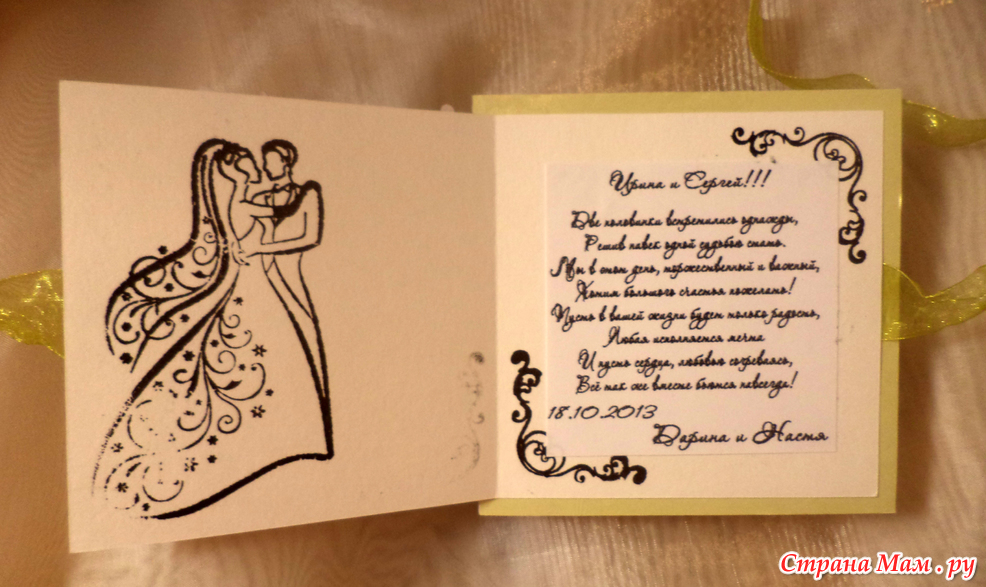 Ирина и Сергей!!!
Две половинки встретились однажды,
Решив навек одной судьбою стать.
Мы в этот день, торжественный и важный,
Хотим большого счастья пожелать!
Пусть в вашей жизни будет только радость,
Любая исполняется мечта
И пусть сердца, любовью согреваясь,
Всё так же вместе бьются навсегда!
18.10.2013
Дарина и Настя
Страна Мам.ру